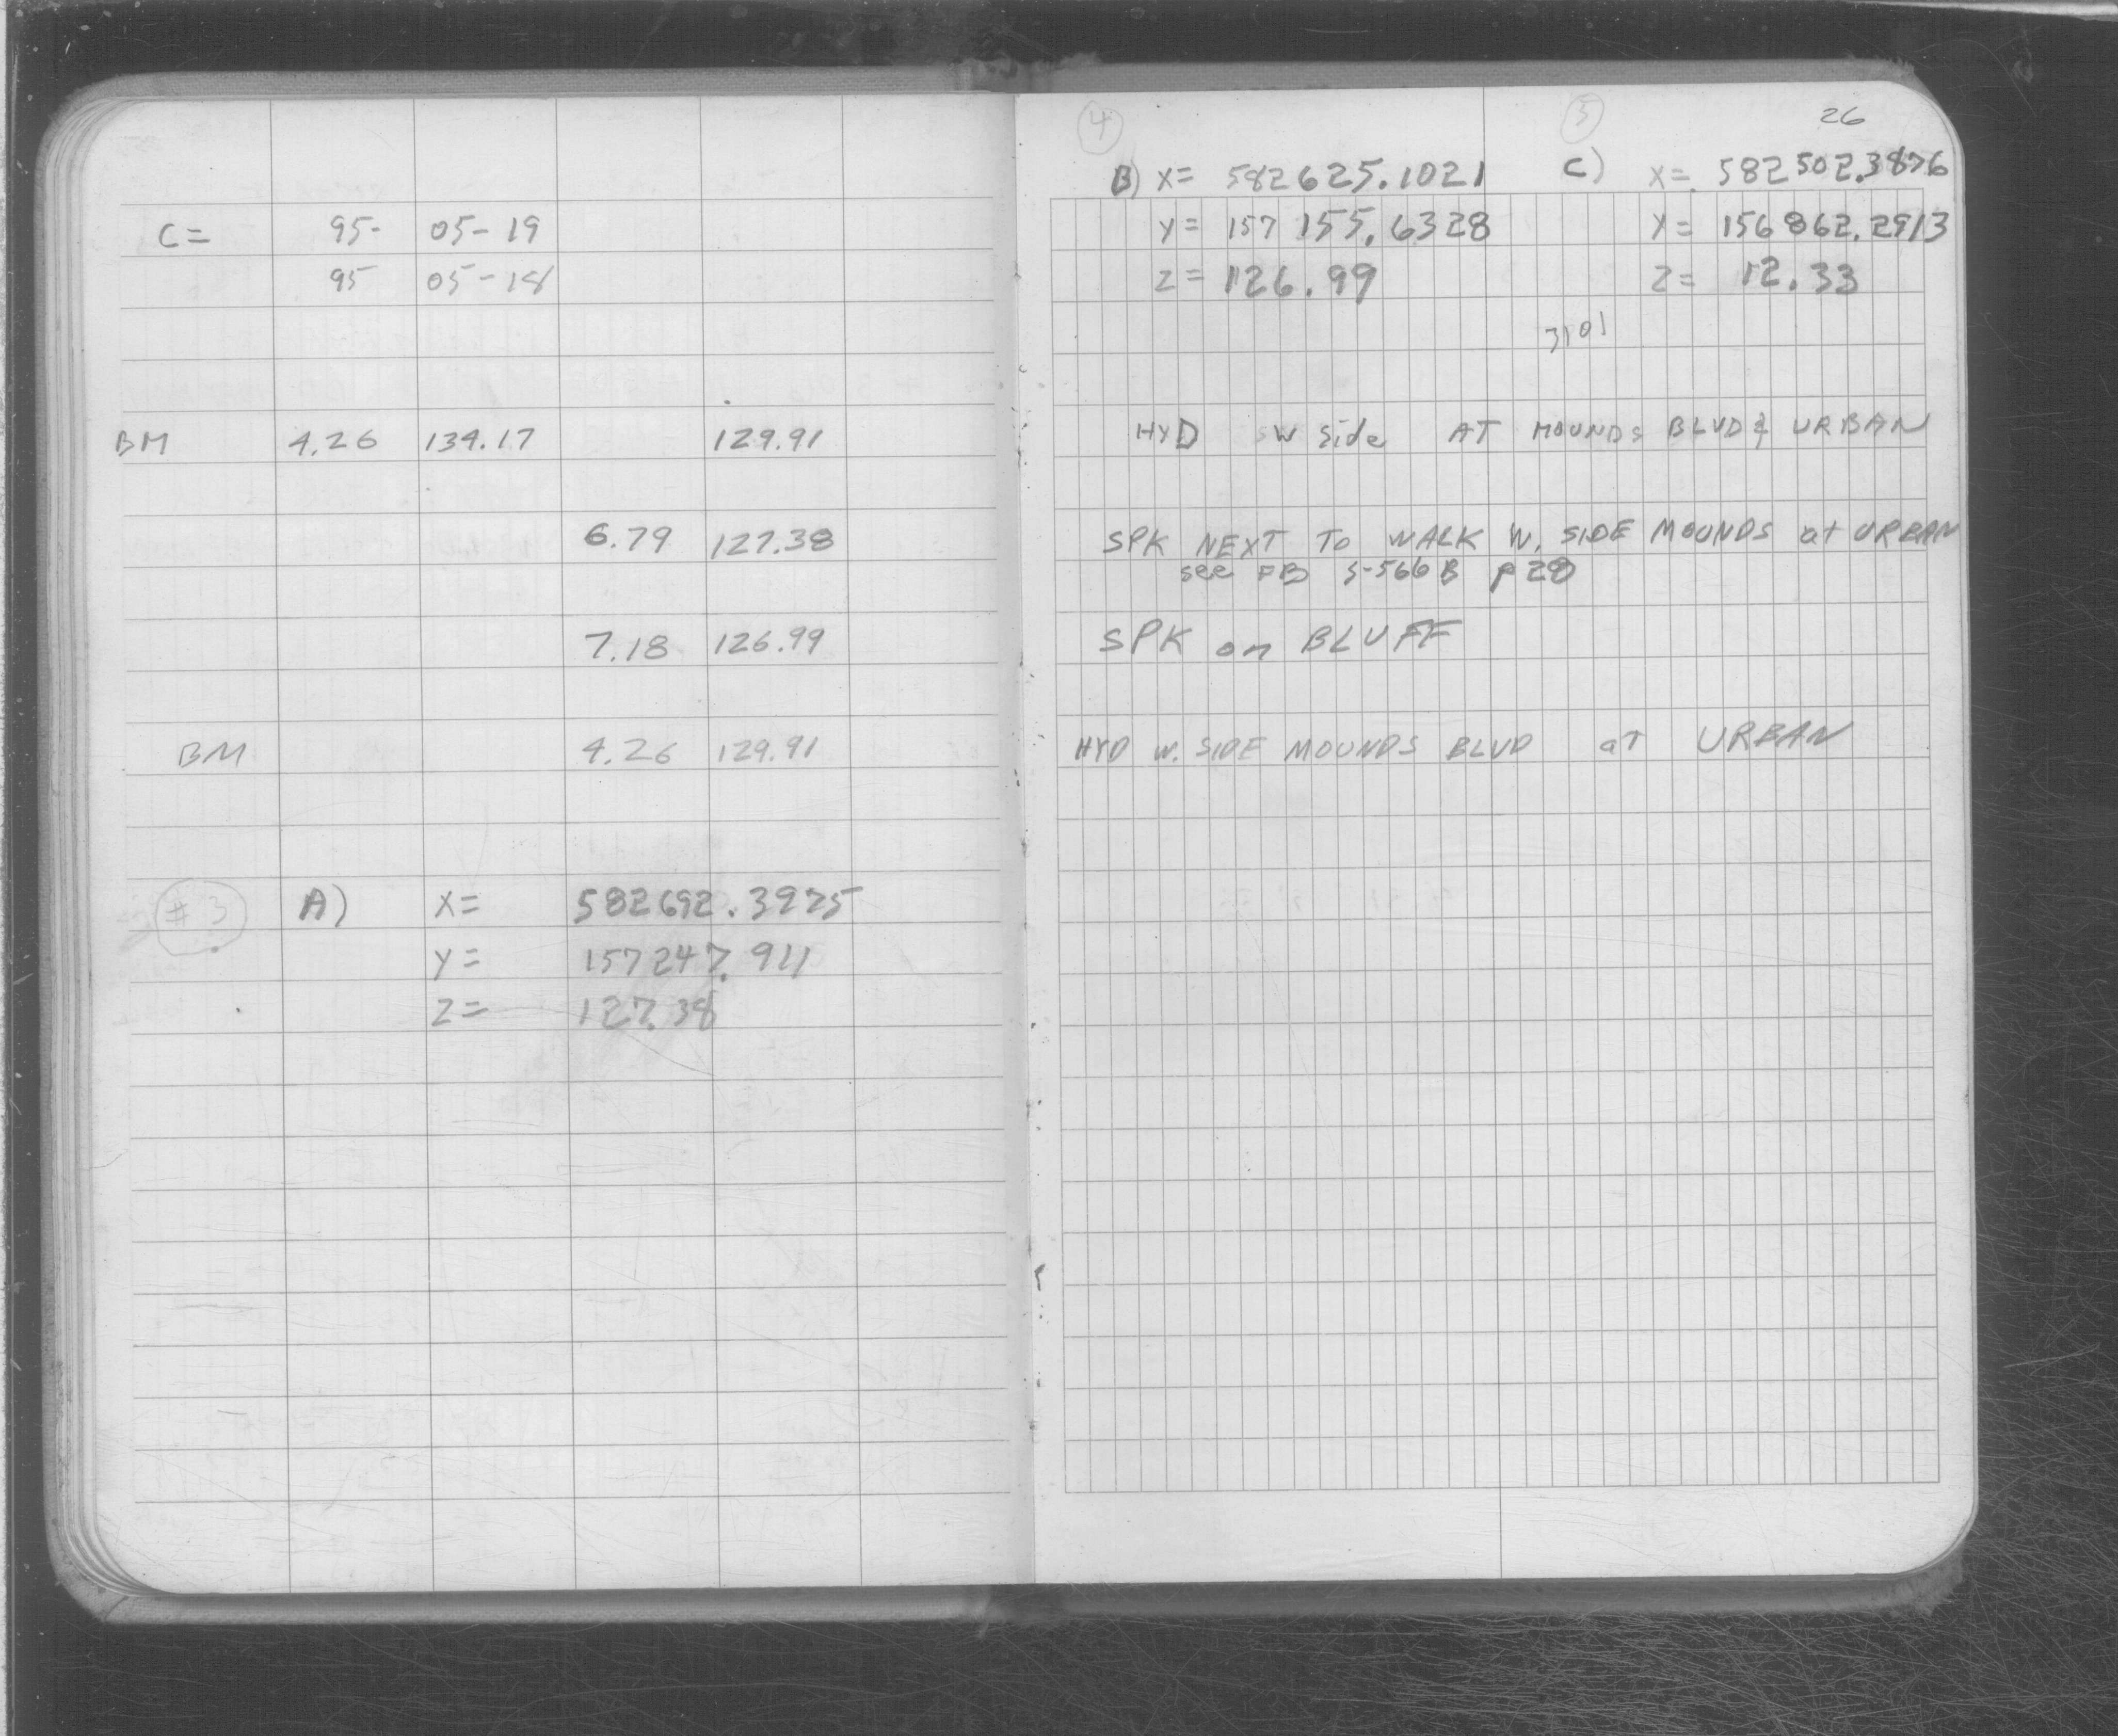 C= 95- 05-19
95 05-18
BM 4.26 134.17 129.91
6.79 127.38
7.18 126.99
BM 4.26 129.91
#3 A) X= 582692.3975
Y= 157247.911
Z= 127.38
26
4 5
B) X= 582625.1021 C) X= 582502.3876
Y= 157155.6328 Y= 156862.2913
Z= 126.99 Z= 12.33
3101
HYD SW Side AT MOUNDS BLVD & URBAN
SPK NEXT TO WALK W. SIDE MOUNDS at URBAN
see FB S-566B p 28
SPK on BLUFF
HYD W. SIDE MOUNDS BLVD aT URBAN